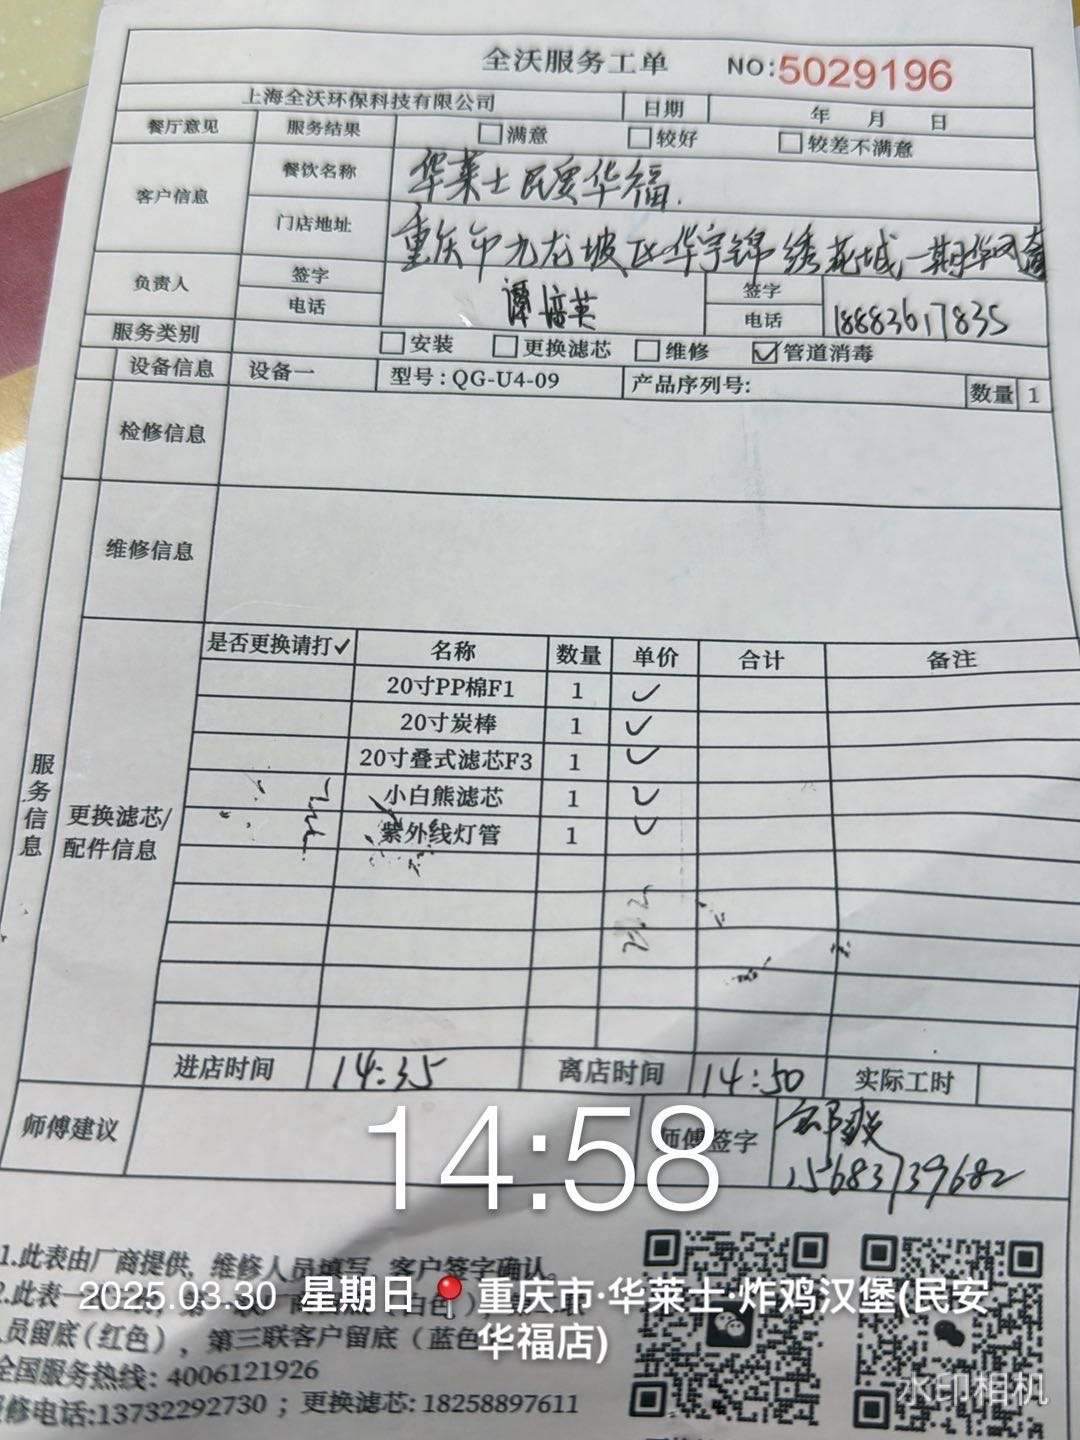 全沃服务工单 NO:5029196
上海全沃环保科技有限公司 日期 年 月 日
餐厅意见 服务结果 □满意 □较好 □较差不满意
客户信息 餐饮名称 华莱士民安华福.
门店地址 重庆市九龙坡区华宇锦绣花城一期华冈
负责人 签字 谭培英 签字
电话 电话 18883617835
服务类别 □安装 □更换滤芯 □维修 ☑管道消毒
设备信息 设备一 型号:QG-U4-09 产品序列号: 数量 1
检修信息
维修信息
服务信息
更换滤芯/
配件信息
是否更换请打✓ 名称 数量 单价 合计 备注
20寸PP棉F1 1 ✓
20寸炭棒 1 ✓
20寸叠式滤芯F3 1 ✓
小白熊滤芯 1 ✓
紫外线灯管 1 ✓
进店时间 14:35 离店时间 14:50 实际工时
师傅建议 师傅签字
15683739682
14:58
1.此表由厂商提供,维修人员填写,客户签字确认。
2.此表一
2025.03.30 星期日 重庆市·华莱士·炸鸡汉堡(民安
华福店)
员留底(红色),第三联客户留底(蓝色
全国服务热线: 4006121926
修电话:13732292730 ; 更换滤芯: 18258897611
水印相机